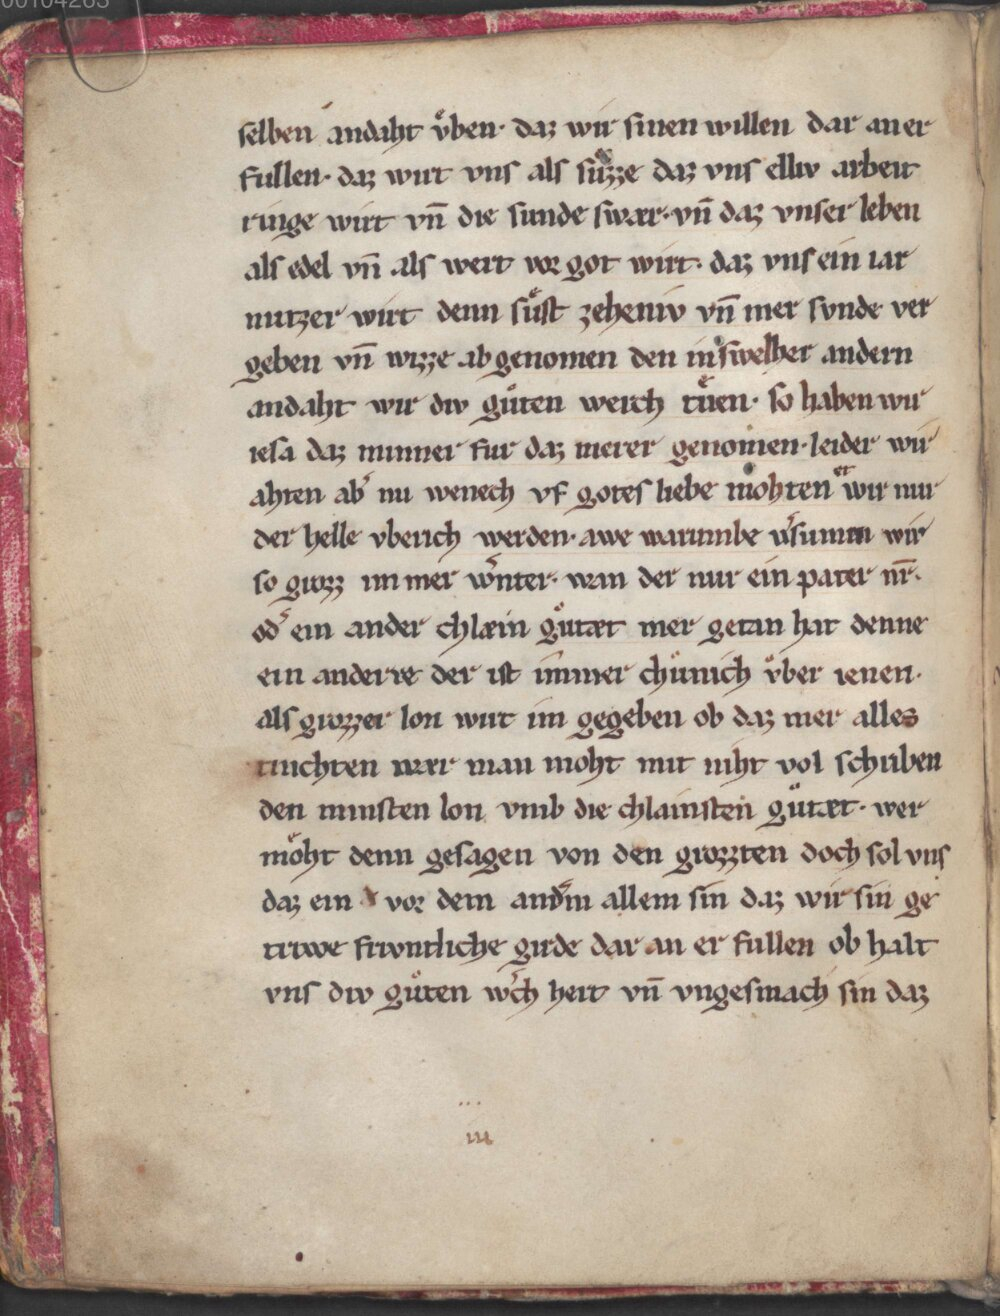 00104263
selben andaht vͤben· daz wir sinen willen dar an er
fullen· daz wirt vns als sůzze daz vns elliv arbeit
ringe wirt vn̄ die sunde swær· vn̄ daz vnser leben
als edel vn̄ als wert vor got wirt· daz vns ein iar
nutzer wirt denn sůst zeheniv vn̄ mer svnde ver
geben vn̄ wizze ab genomen den in swelher andern
andaht wir div gůten werch tůen· so haben wir
iesa daz minner fur daz merer genomen· leider wir
ahten ab̾ nu wenech vf gotes liebe mohten er wir nur
der helle vberich werden· awe warumbe v̾sumen wir
so grozz immer w̾nter· wan der nur ein pater nr̄·
od̾ ein ander chlæin gůtæt mer getan hat denne
ein anderre der ist immer chůnich vͤber ienen·
als grozzer lon wirt im gegeben ob daz mer alles
tinchten wær man moht mit niht vol schriben
den minsten lon vmb die chlainsten gůtæt· wer
moͤht denn gesagen von den grozzten doch sol vns
daz ein vor dem and̾m allem sin daz wir sin ge
triwe frivntliche girde dar an er fullen ob halt
vns div gůten w̾ch hert vn̄ vngesmach sin daz
iii